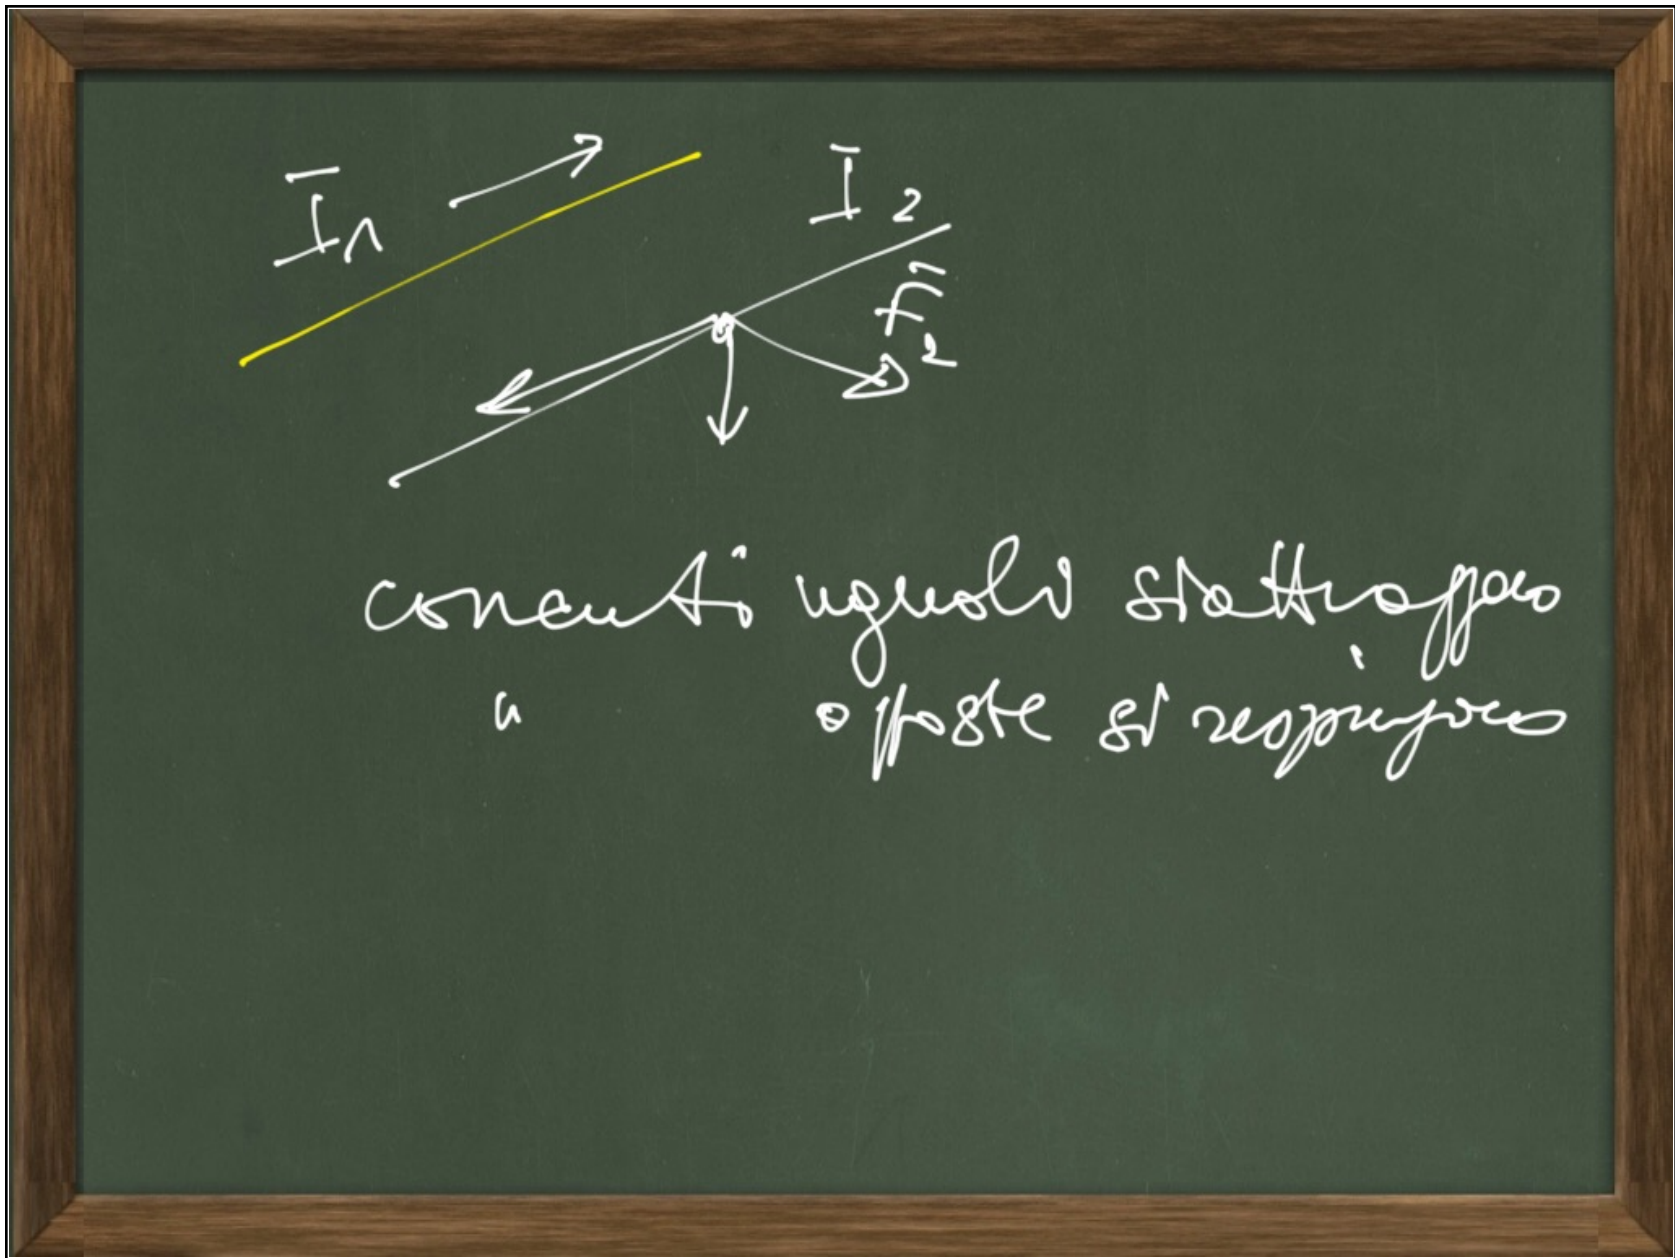 I1
I2
F2
correnti uguali si attraggono
" opposte si respingono